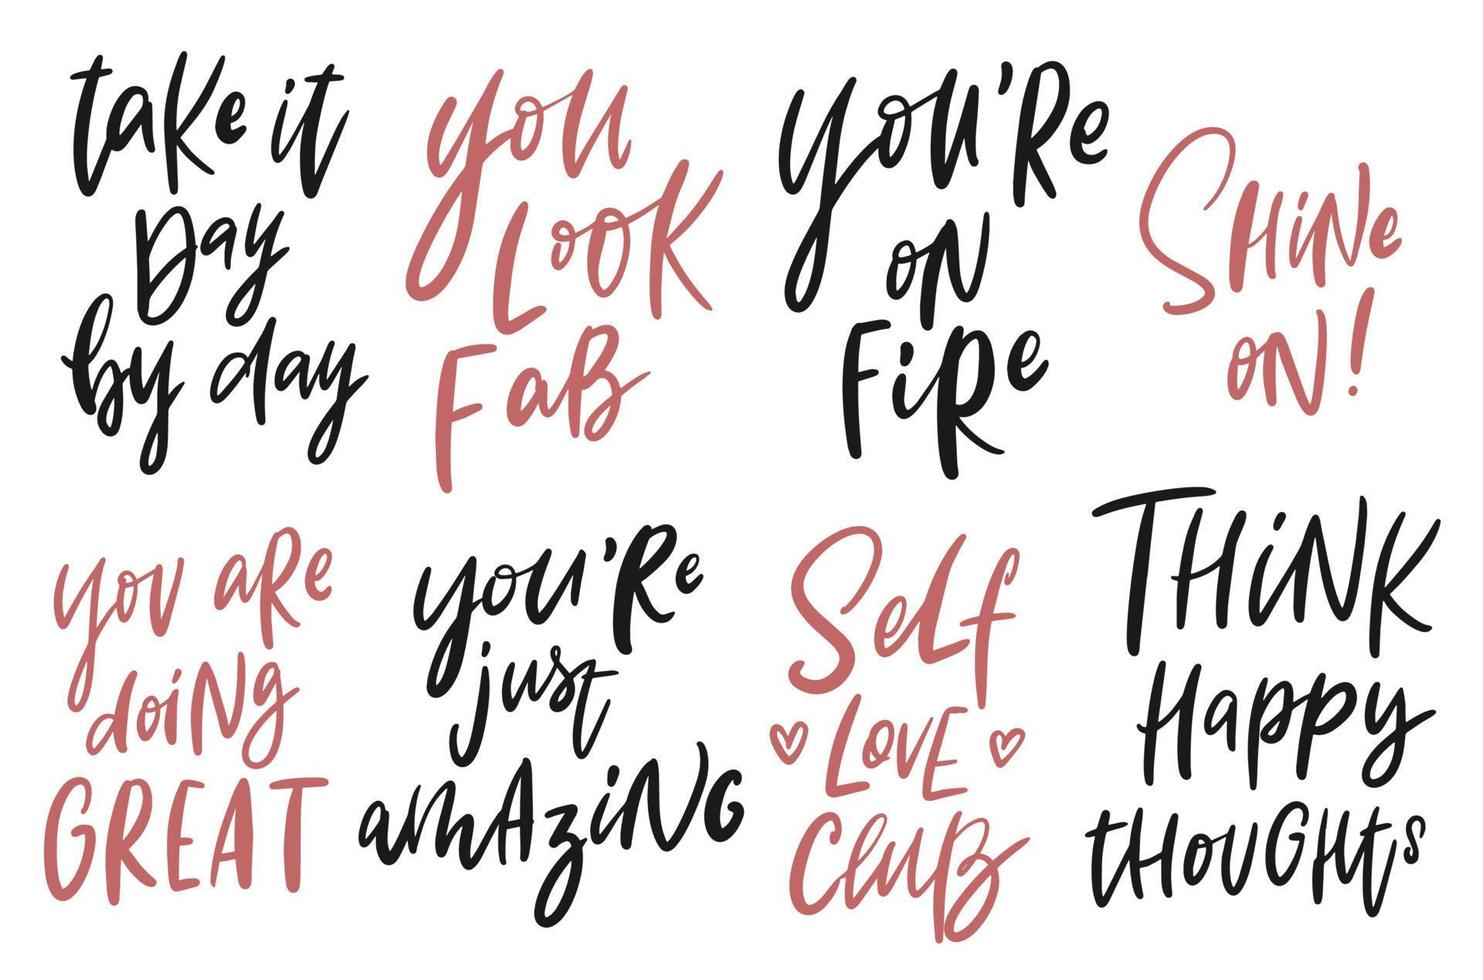 take it
Day
by day
you
Look
FaB
you're
on
FiRe
SHiNe
ON!
you are
doiNg
GREAT
you're
just
amAziNG
Self
LOVE
CluB
THiNK
Happy
tHOUGHts